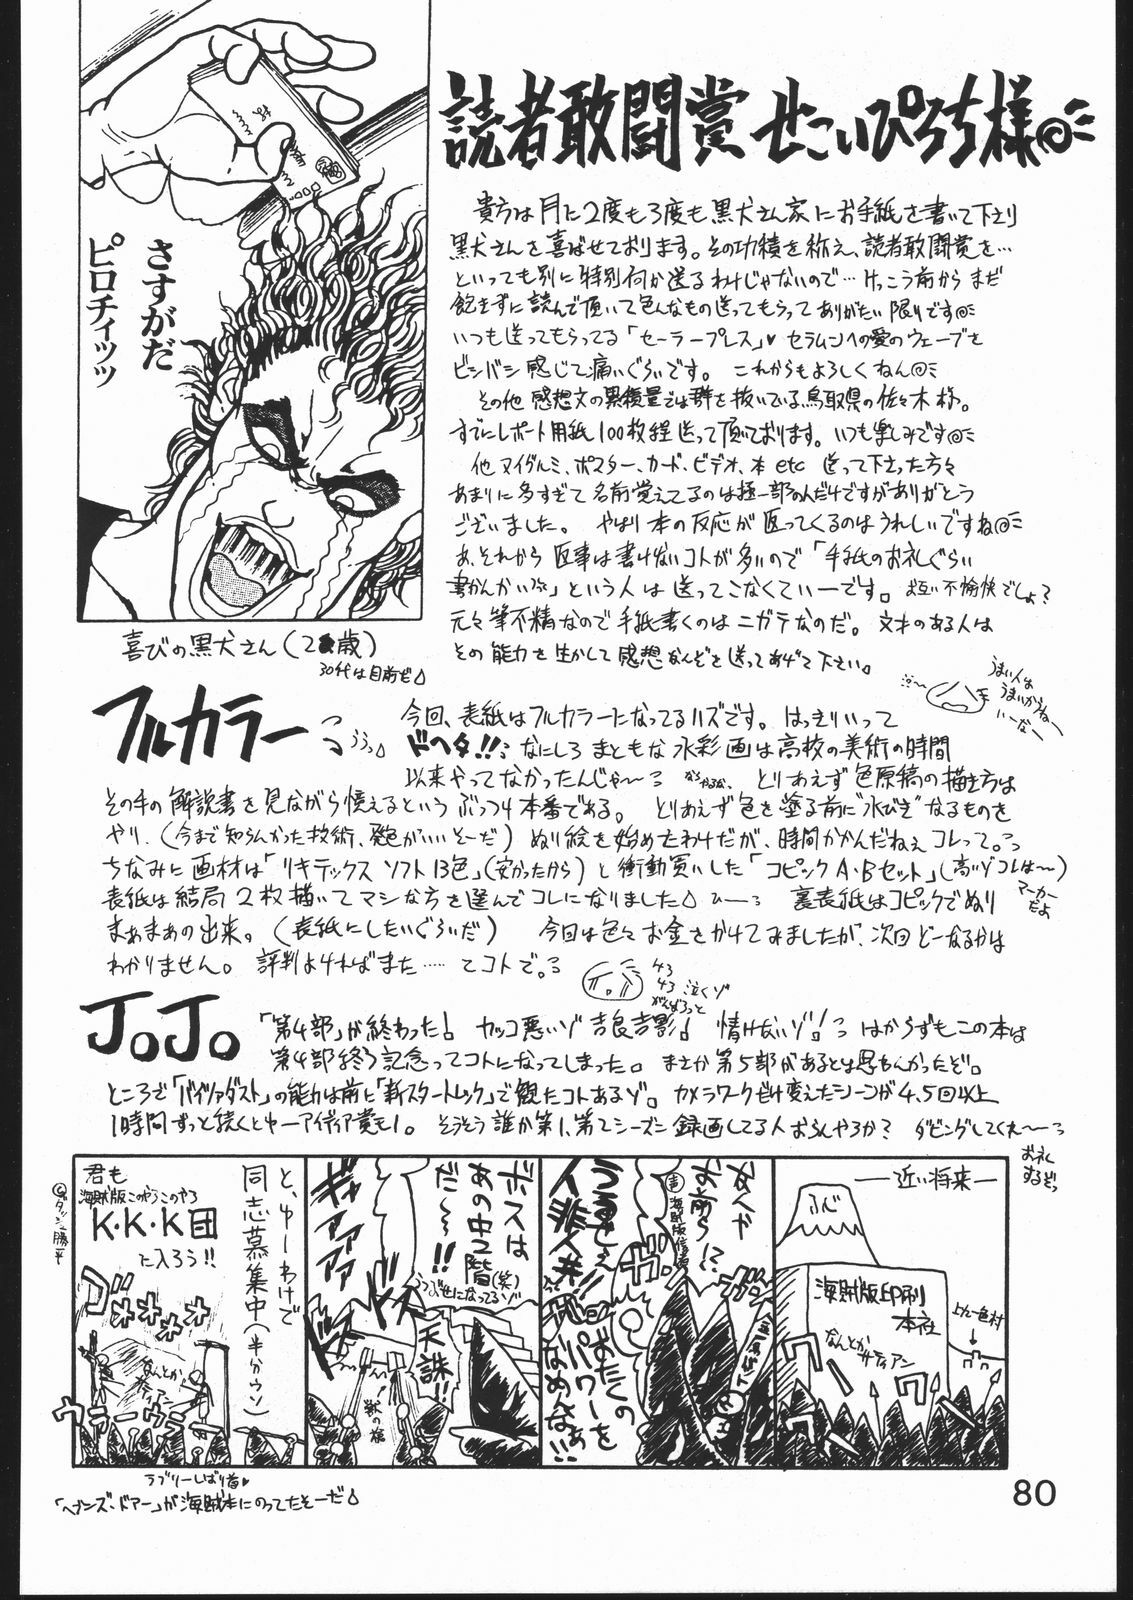 読者敢闘賞 せこいぴろち様
さすがだ
ピロチィッッ
喜びの黒犬さん(2 歳)
30代は目前だ
貴方は月に2度も3度も黒犬さん家にお手紙を書いて下さり
黒犬さんを喜ばせております。その功積を称え、読者敢闘賞を…
といっても別に特別何か送るわけじゃないので…けっこう前からまだ
飽きずに読んで頂いて色んなもの送ってもらってありがたい限りです
いつも送ってもらってる「セーラープレス」♥ セラムンへの愛のウェーブを
ビシバシ感じて痛いぐらいです。これからもよろしくねん
その他 感想文の累積量では群を抜いている鳥取県の佐々木様。
すでにレポート用紙100枚程送って頂いております。いつも楽しみです
他ヌイグルミ、ポスター、カード、ビデオ、本etc 送って下さった方々
あまりに多すぎて名前覚えてるのは極一部の人だけですがありがとう
ございました。やはり本の反応が返ってくるのはうれしいですね
あ、それから返事は書けないコトが多いので「手紙のお礼ぐらい
書かんかい」という人は送ってこなくていーです。お互い不愉快でしょ?
元々筆不精なので手紙書くのはニガテなのだ。文才のある人は
その能力を生かして感想なんぞを送ってあげて下さい。
うまい人は
うまいからねー
いーなー
フルカラー
ううっ
今回、表紙はフルカラーになってるハズです。はっきりいって
ドヘタ!!なにしろまともな水彩画は高校の美術の時間
以来やってなかったんじゃ〜 とりあえず色原稿の描き方は
その手の解説書を見ながら憶えるというぶっつけ本番である。とりあえず色を塗る前に"水びき"なるものを
やり、(今まで知らんかった技術、発色がいいそーだ)ぬり絵を始めたわけだが、時間かかんだねぇコレって。
ちなみに画材は「リキテックス ソフト13色」(安かったから)と衝動買いした「コピックA・Bセット」(高いゾコレは〜)
マーカーだよ
表紙は結局2枚描いてマシな方を選んでコレになりました ひー 裏表紙はコピックでぬり
まぁまぁの出来。(表紙にしたいぐらいだ) 今回は色々お金をかけてみましたが、次回どーなるかは
わかりません。評判よければまた……てコトで。
泣くゾ
JoJo
「第4部」が終わった! カッコ悪いゾ 吉良吉影! 情けないゾ! はからずもこの本は
第4部終了記念ってコトになってしまった。まさか第5部があるとは思わんかったぞ。
ところで「バイツァダスト」の能力は前に「新スタートレック」で観たコトあるゾ。カメラワークだけ変えたシーンが4、5回以上
1時間ずっと続くとゆーアイディア賞モノ。そうそう誰か第1、第2シーズン録画してる人おらんやろか? ダビングしてくれ〜
お礼
するぞっ
―近い将来―
ふじ
海賊版印刷
本社
上九一色村
なんとか
サティアン
なんや
お前ら!?
海賊版信者
うるせえ
人非人共!!
おたくの
パワーを
なめんなぁ!!
ボスは
あの中2階(笑)
だ〜!!
ギャ
アアアア
天誅!!
と、ゆーわけで
同志募集中(半分ウソ)
君も
海賊版このやろこのやろ
K・K・K団
に入ろう!!
ゴオォォォ
なんとか
サティアン
ウラーウラー
ラブリーしばり首♥
「ヘブンズ・ドアー」が海賊本にのってたそーだ
80